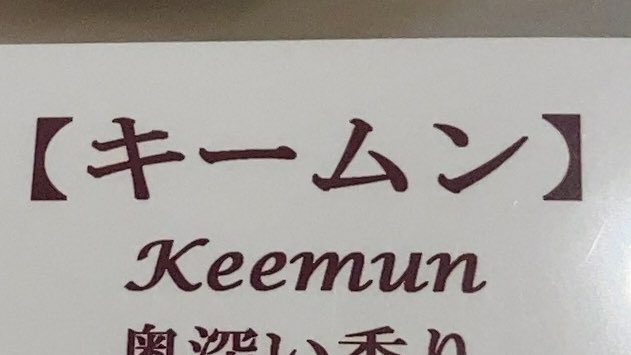 【キームン】
Keemun
奥深い香り